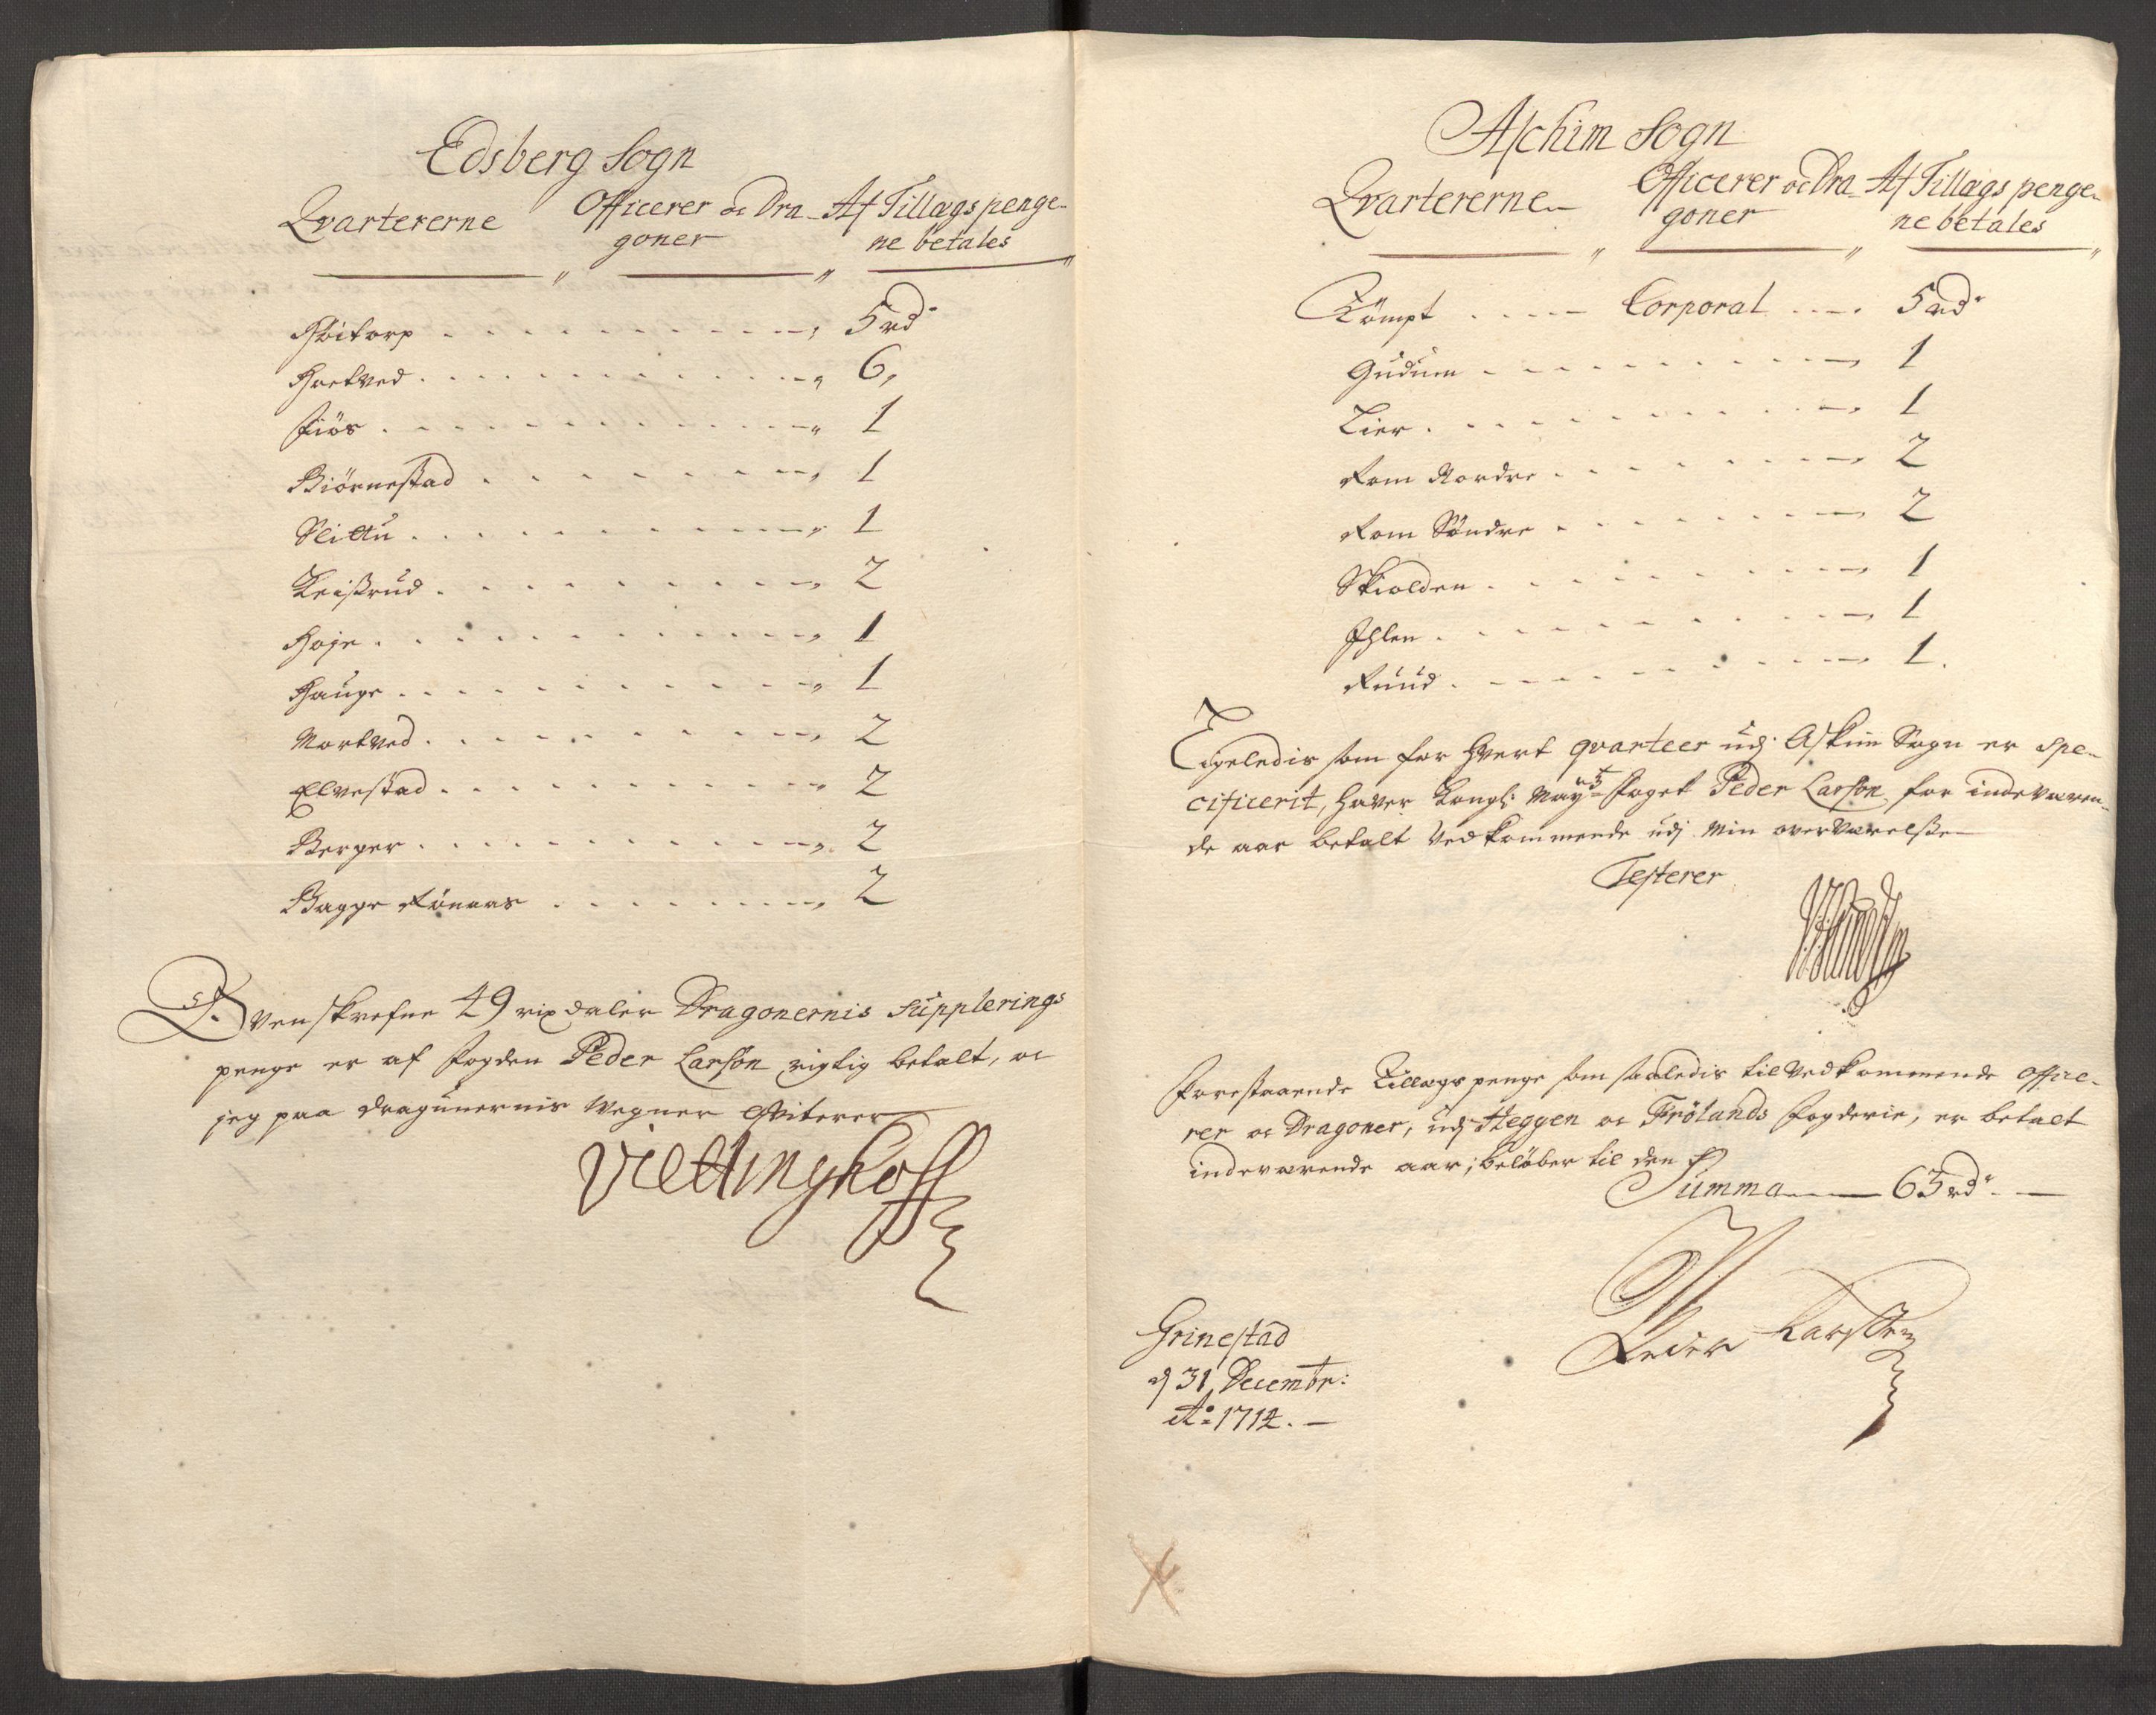 Edsberg Sogn
Qvartererne
Officerer oc Dra-
goner
Af Tillægs penge-
ne betales
Høitorp 5 rd
Hretved 6,
Fiøs 1
Biørnestad 1
Slittu 1
Kristrud 2
Hoje 1
Hauge 1
Mortved 2
Elvestad 2
Berger 2
Bagge Rønaas 2
Ovenskrefne 49 rixdaler Dragonernis Supplerings
penge er af fogden Peder Larsøn rigtig betalt, oc
jeg paa dragunernis Vegner qviterer
Viettinghoff
Aschim Sogn
Qvartererne
Officerer oc Dra-
goner
Af Tillægs penge-
ne betales
Kömpt Corporal 5 rdr
Gudum 1
Lier 1
Rom Nordre 2
Rom Søndre 2
Skiolden 1
Ihlen 1
Ruud 1.
Ligeledis som for hvert qvarteer udj Askim Sogn er spe-
cificerit, haver Kongl: May.ts foget Peder Larsøn, for indeværen-
de aar betalt Vedkommende udj min overværelsse
Testerer
Forestaaende Tillægs penge som saaledis til Vedkommende office-
rer oc Dragoner, udj Heggen oc Frølands fogderie, er betalt
indeværende aar; beløber til den
Summa 63 rdr
Grinestad
d 31 Decembr:
Ao 1712.
Peder Larssen